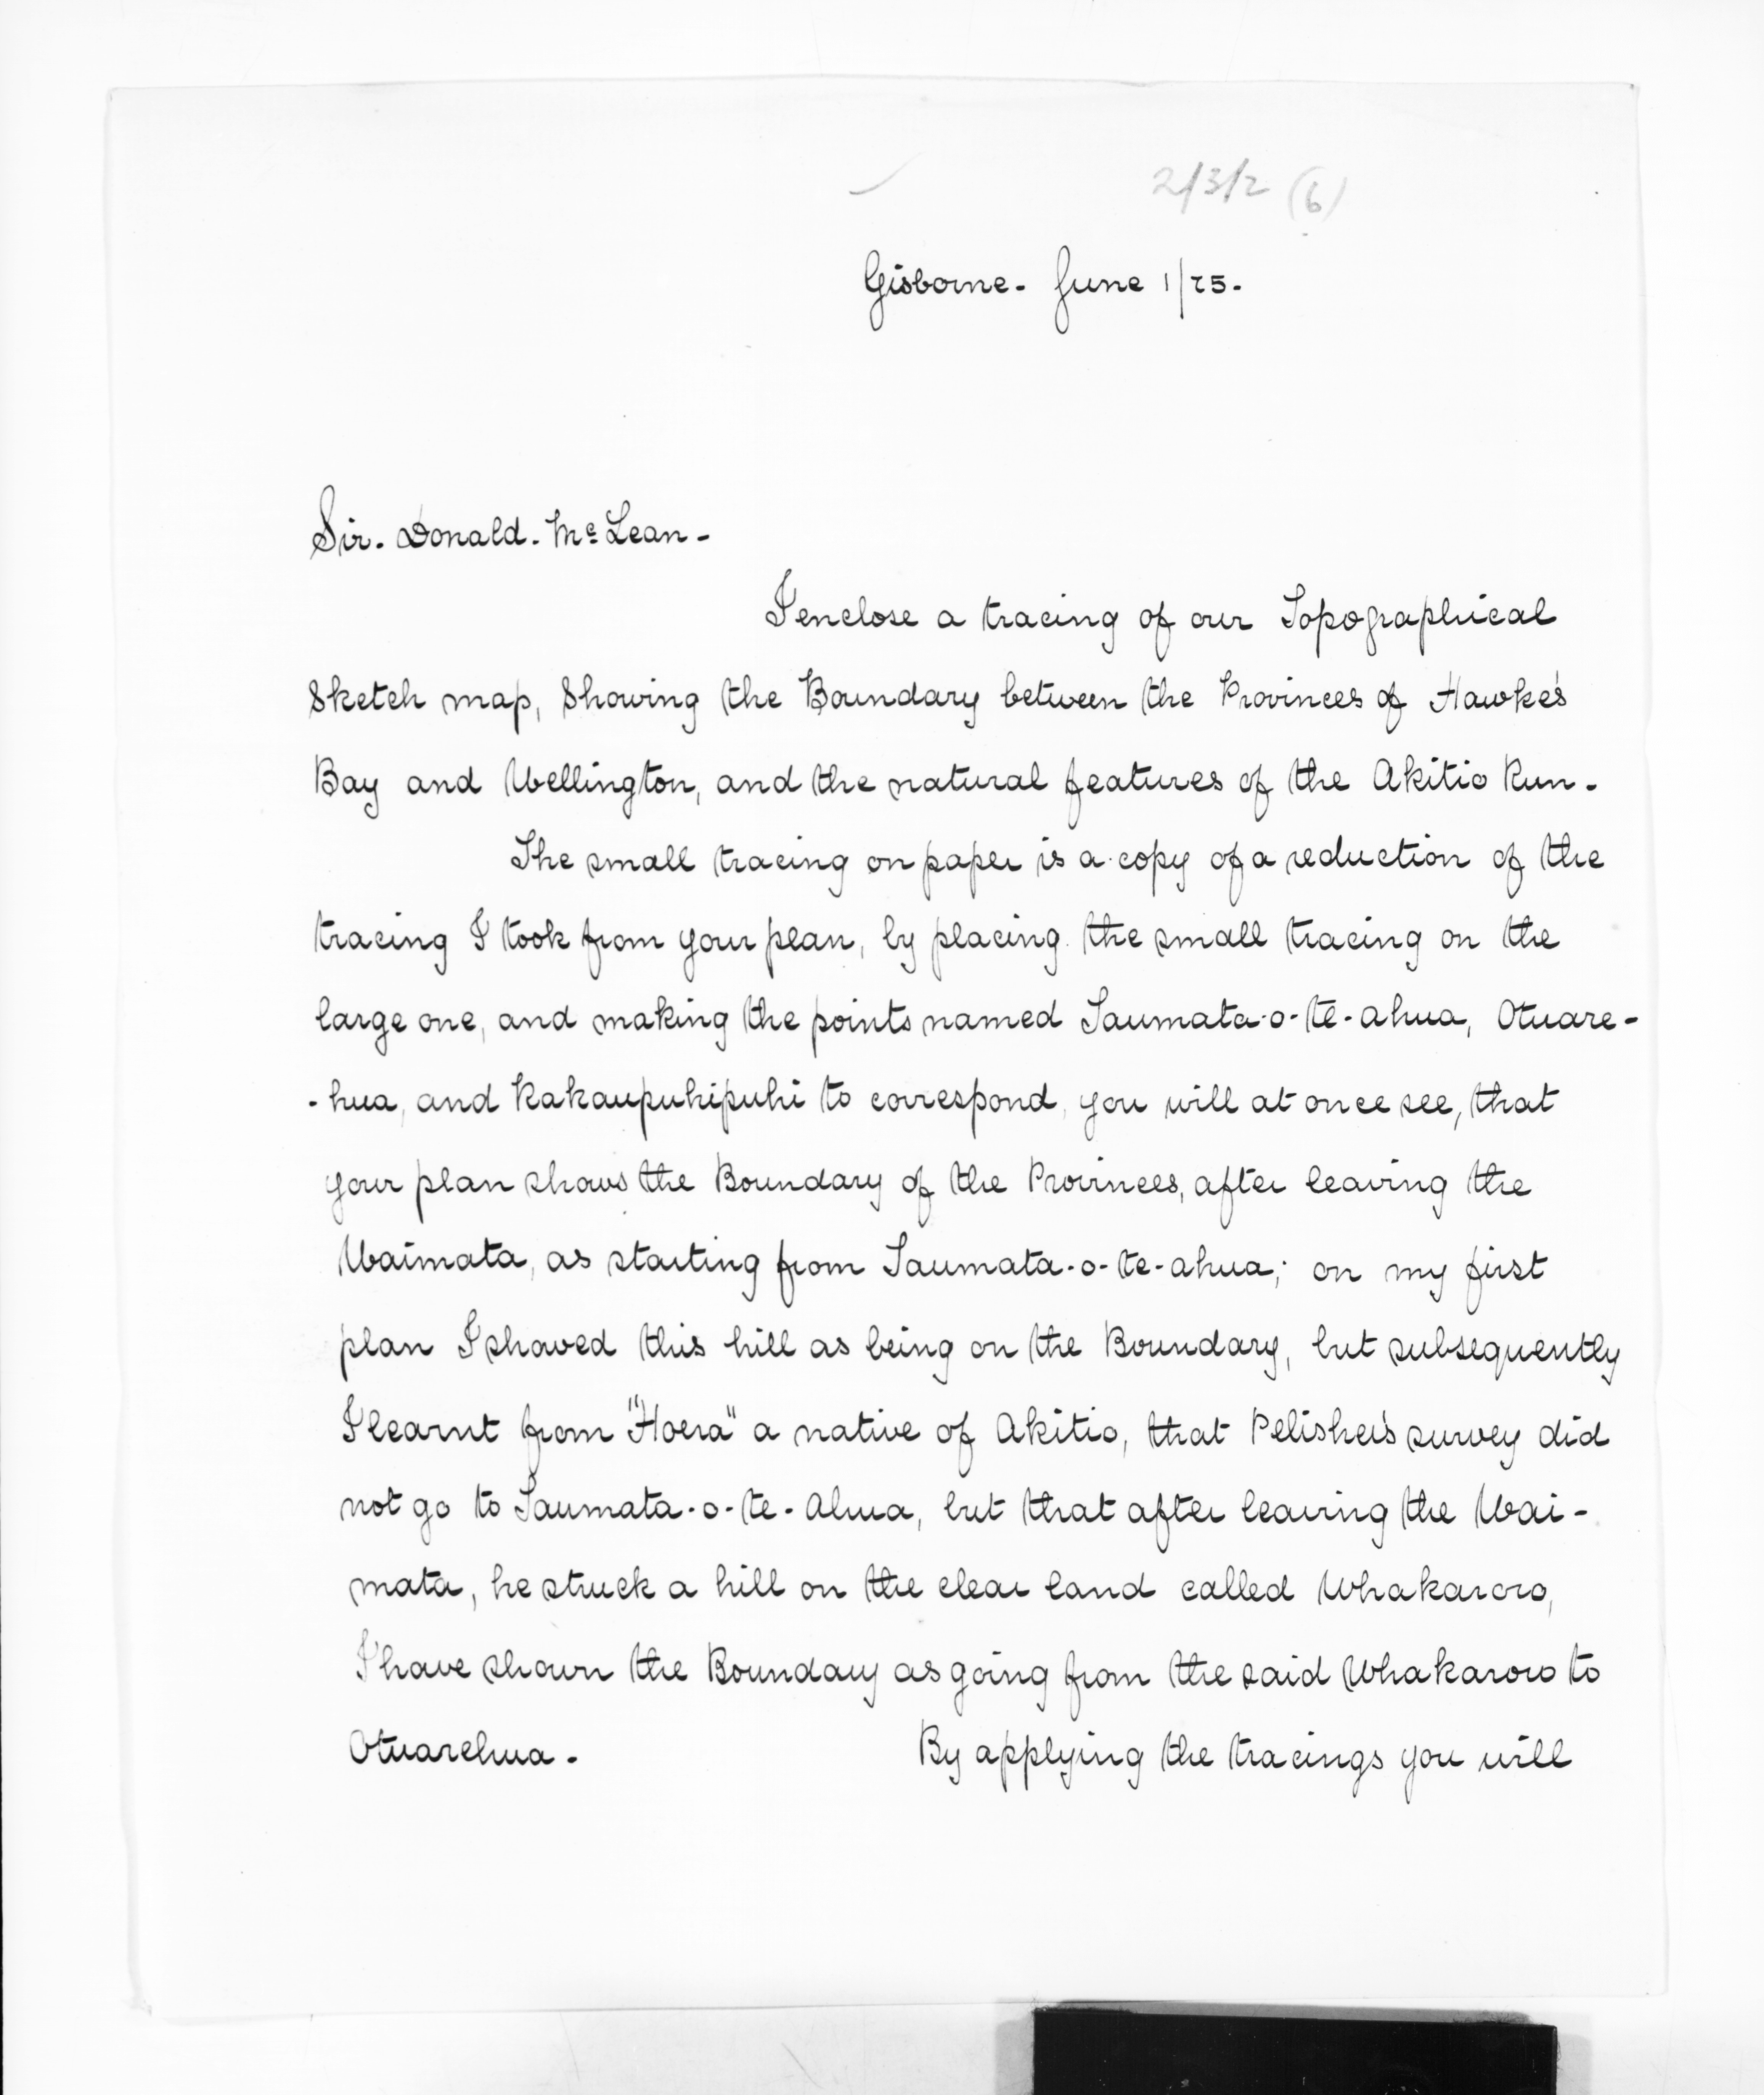 2/3/2 (6)
Gisborne. June 1/75.
Sir. Donald. McLean-
I enclose a tracing of our Topographical
Sketch map, Showing the Boundary between the Provinces of Hawke's
Bay and Wellington, and the natural features of the Akitio Run.
The small tracing on paper is a copy of a reduction of the
tracing I took from your plan, by placing the small tracing on the
large one, and making the points named Taumata-o-te-ahua, Otuare-
-hua, and Kakaupuhipuhi to correspond, you will at once see, that
your plan shows the Boundary of the Provinces, after leaving the
Waimata, as starting from Taumata-o-te-ahua; on my first
plan I showed this hill as being on the Boundary, but subsequently
I learnt from "Hoera" a native of Akitio, that Pelisher's survey did
not go to Taumata-o-te-Ahua, but that after leaving the Wai-
mata, he struck a hill on the clear land called Whakaroro,
I have shown the Boundary as going from the said Whakaroro to
Otuarehua. By applying the tracings you will